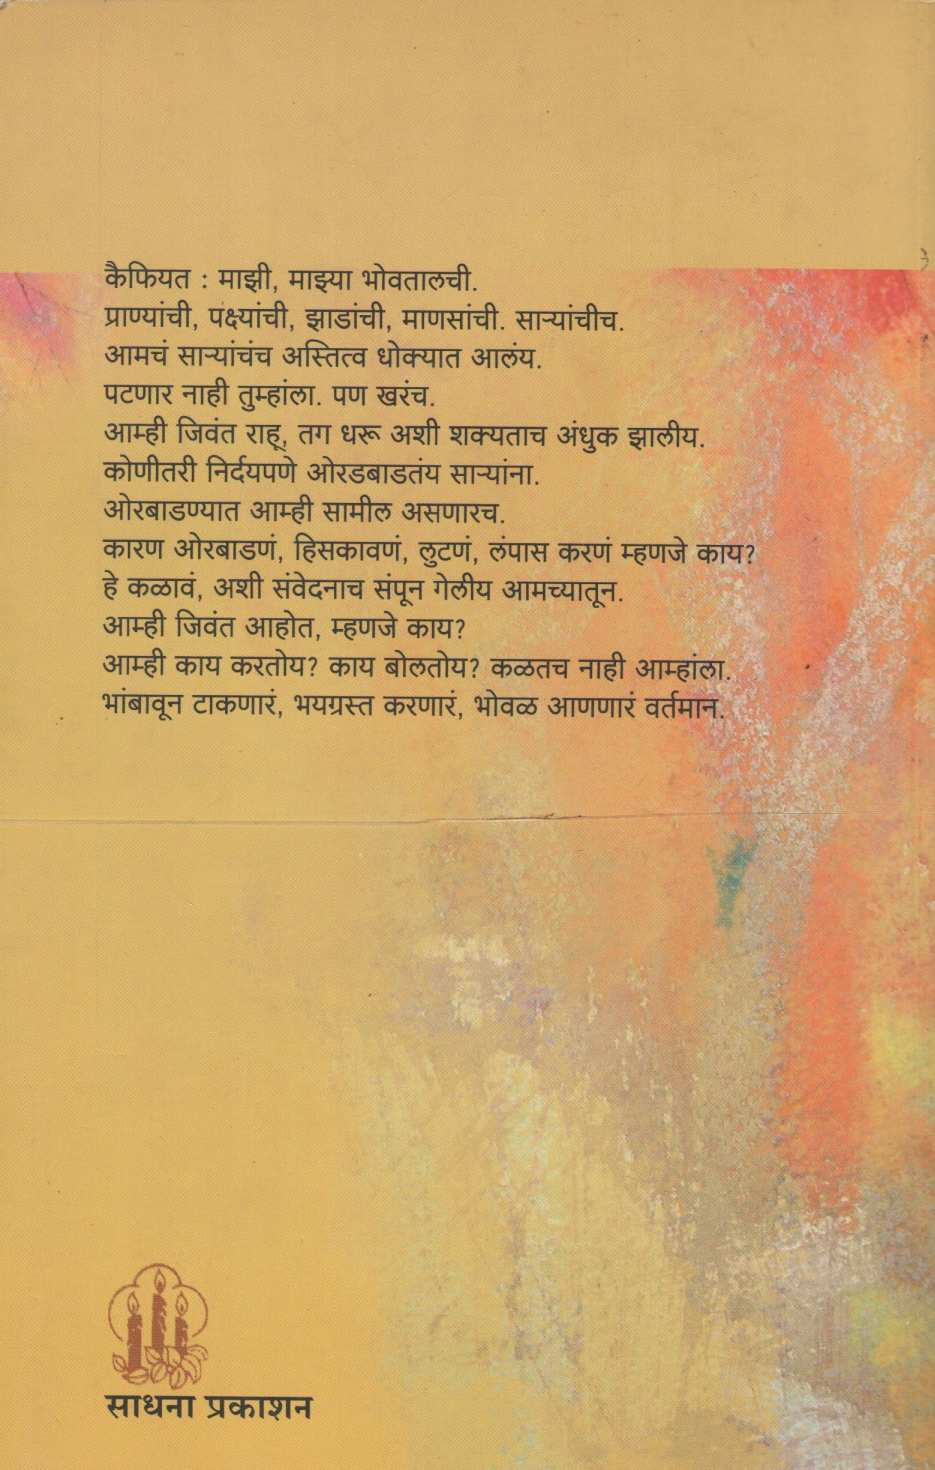 कैफियत : माझी, माझ्या भोवतालची.
प्राण्यांची, पक्ष्यांची, झाडांची, माणसांची. साऱ्यांचीच.
आमचं साऱ्यांचंच अस्तित्व धोक्यात आलंय.
पटणार नाही तुम्हांला. पण खरंच.
आम्ही जिवंत राहू, तग धरू अशी शक्यताच अंधुक झालीय.
कोणीतरी निर्दयपणे ओरडबाडतंय साऱ्यांना.
ओरबाडण्यात आम्ही सामील असणारच.
कारण ओरबाडणं, हिसकावणं, लुटणं, लंपास करणं म्हणजे काय?
हे कळावं, अशी संवेदनाच संपून गेलीय आमच्यातून.
आम्ही जिवंत आहोत, म्हणजे काय?
आम्ही काय करतोय? काय बोलतोय? कळतच नाही आम्हांला.
भांबावून टाकणारं, भयग्रस्त करणारं, भोवळ आणणारं वर्तमान.
साधना प्रकाशन